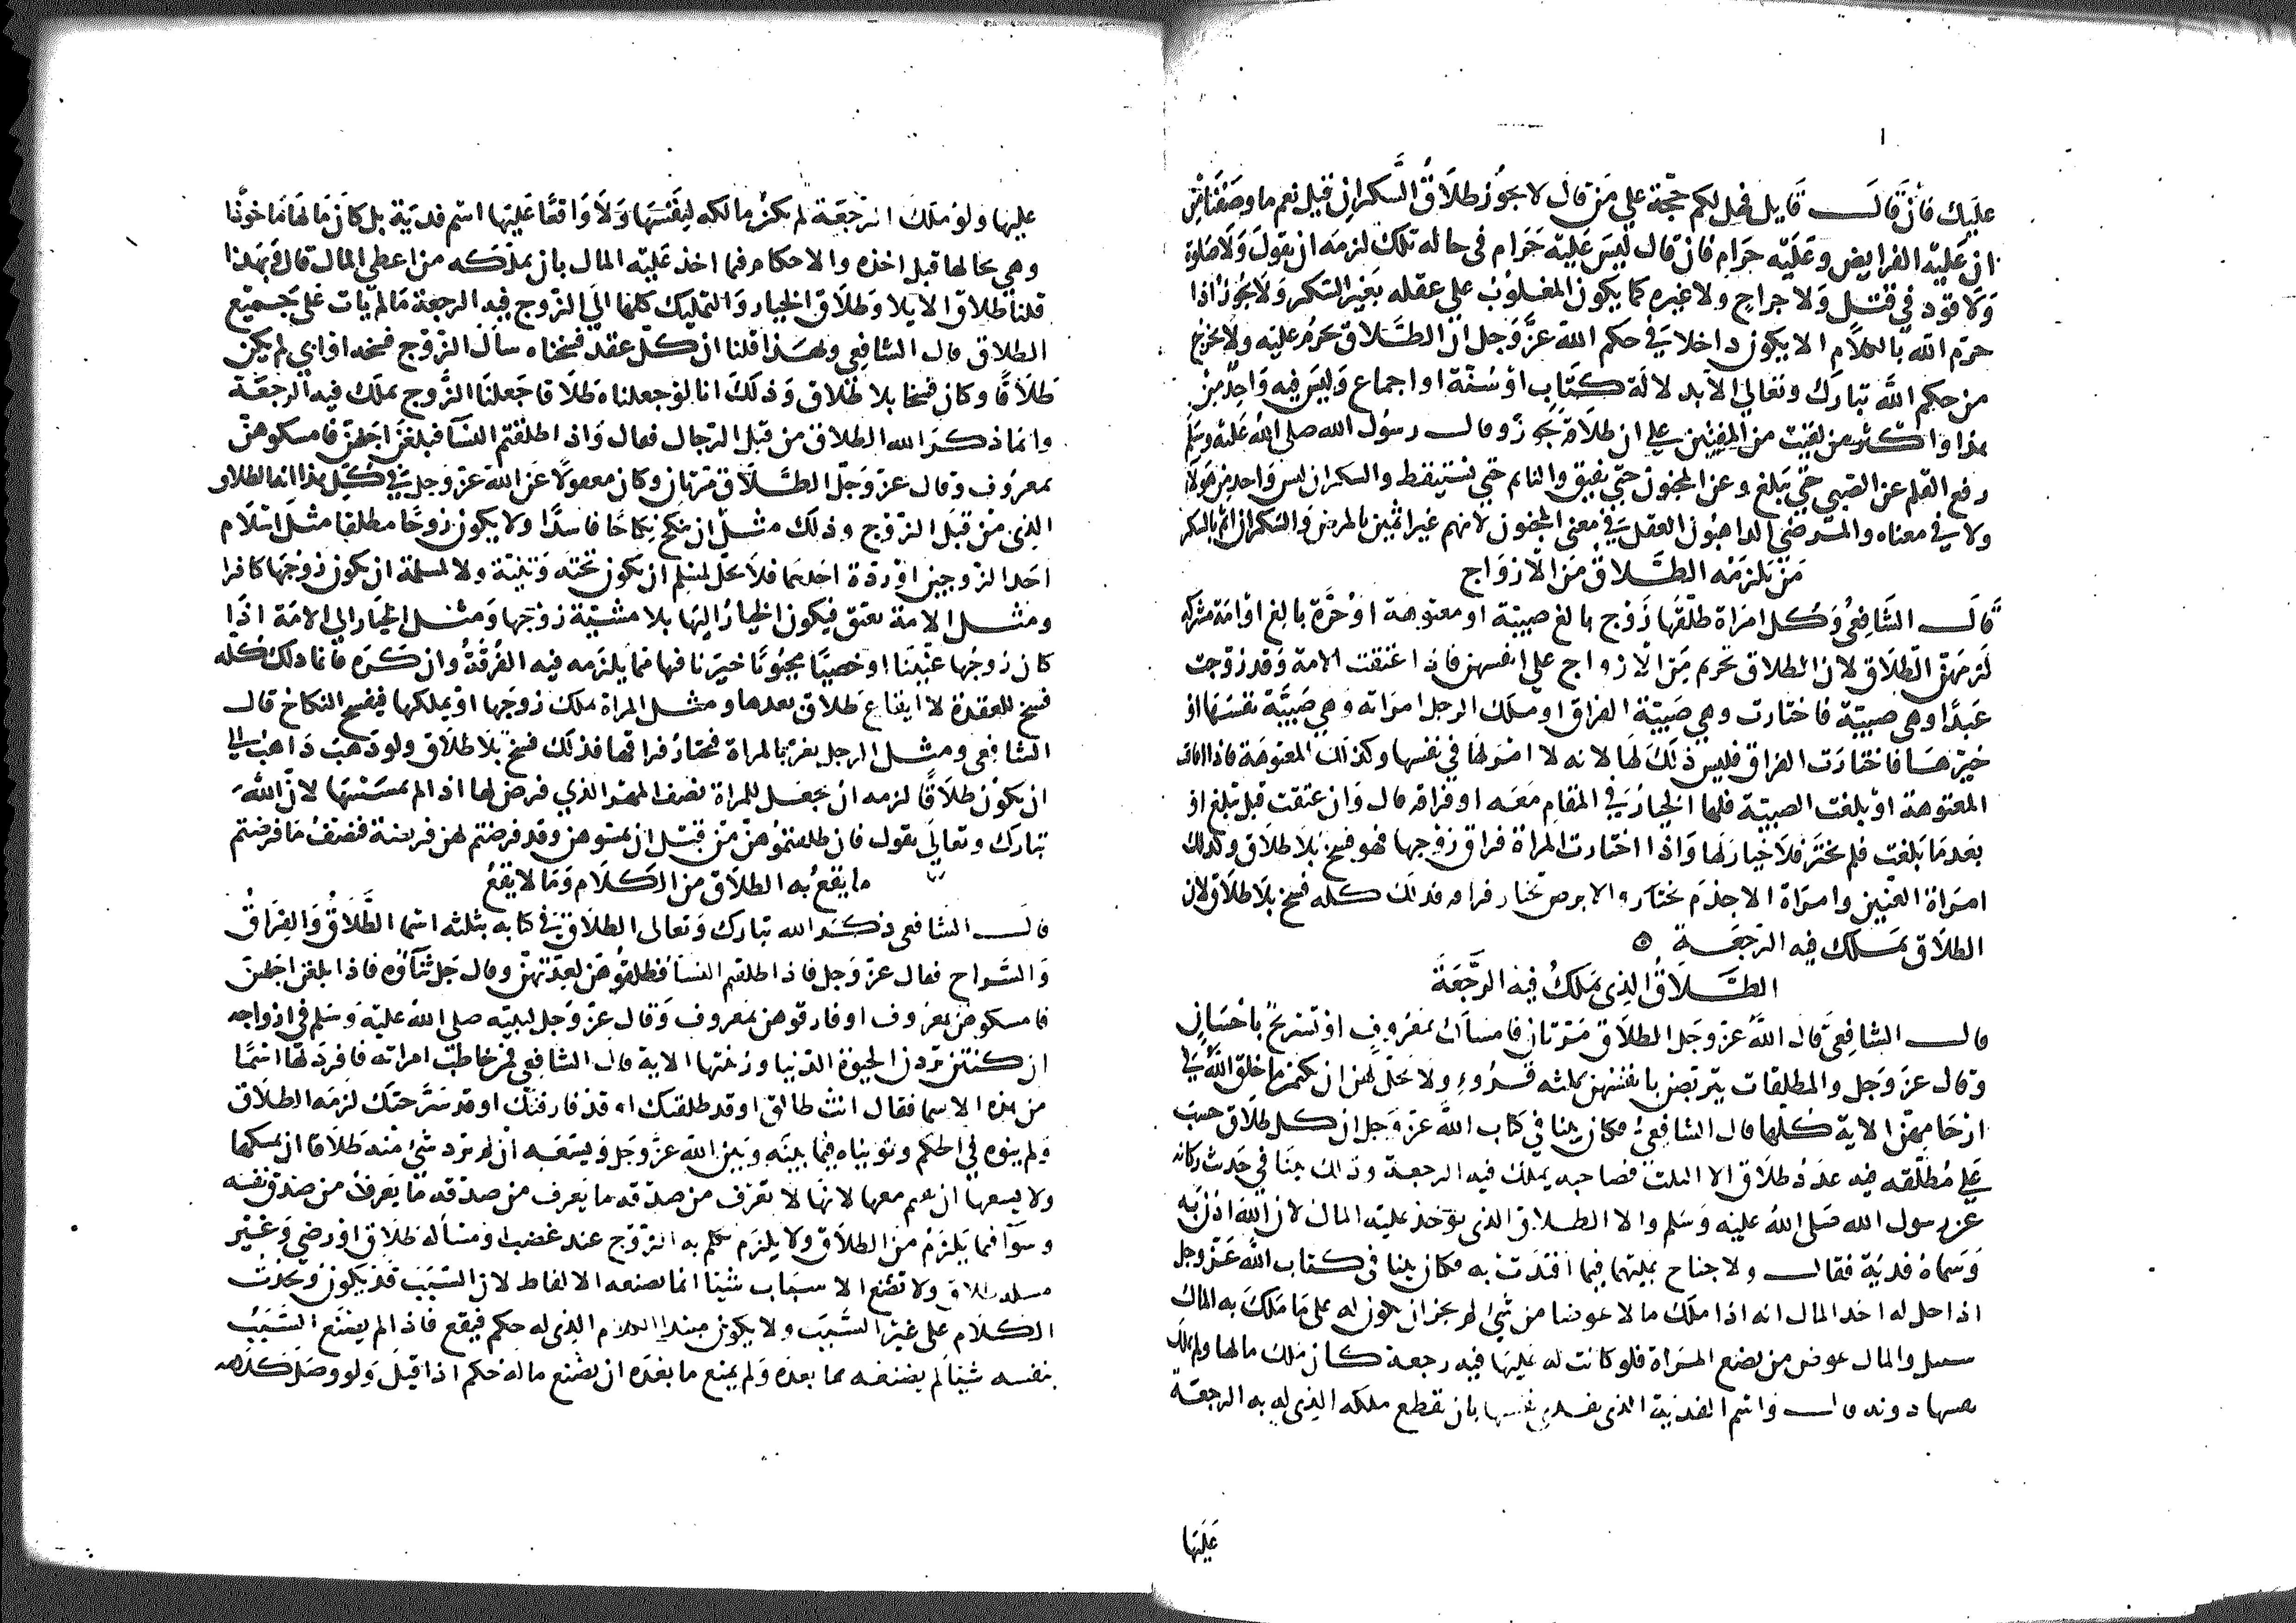 عليك فان قال قايل فهل لكم حجة علي من قال لا يجوز طلاق السكران قيل نعم ما وصفنا من
ان عليه الفرايض وعليه حرام فان قال ليس عليه حرام في حاله تلك لزمه ان يقول ولا صلوة
ولا قود في قتل ولا جراح ولا غيره كما يكون المغلوب علي عقله بغير السكر ولا يجوز اذا
حرم الله بالكلام الا يكون داخلا في حكم الله عز وجل ان الطلاق يحرم عليه ولا يخرج
من حكم الله تبارك وتعالي الا بدلالة كتاب او سنة او اجماع وليس فيه واحد من
هذا واكثر من لقيت من المفتين علي ان طلاقه يجوز وقال رسول الله صلي الله عليه وسلم
رفع القلم عن الصبي حتي يبلغ وعن المجنون حتي يفيق والنايم حتي يستيقظ والسكران ليس واحد من هولا
ولا في معناه والمرضي الذاهبون العقل في معني المجنون لانهم غير اثمين بالمرض والسكران اثم بالسكر
من يلزمه الطلاق من الازواج
قال الشافعي وكل امراة طلقها زوج بالغ صبية او معتوهة او حرة بالغ او امة او مشركة
لزمهن الطلاق لان الطلاق تحريم من الازواج علي انفسهن فاذا اعتقت الامة وقد زوجت
عبدا وهي صبية فاختارت وهي صبية الفراق او ملك الرجل امراته وهي صبية نفسها او
خيرها فاختارت الفراق فليس ذلك لها لانه لا امر لها في نفسها وكذلك المعتوهة فاذا افاقت
المعتوهة او بلغت الصبية فلها الخيار في المقام معه او فراقه قال وان عتقت قبل تبلغ او
بعدما بلغت فلم تختر فلا خيار لها واذا اختارت المراة فراق زوجها فهو فسخ بلا طلاق وكذلك
امراة العنين وامراة الاجذم تختار والابرص تختار فراقه فذلك كله فسخ بلا طلاق لان
الطلاق يملك فيه الرجعة ه
الطلاق الذي يملك فيه الرجعة
قال الشافعي قال الله عز وجل الطلاق مرتان فامساك بمعروف او تسريح باحسان
وقال عز وجل والمطلقات يتربصن بانفسهن ثلثه قروء ولا يحل لهن ان يكتمن ما خلق الله في
ارحامهن الاية كلها قال الشافعي فكان بينا في كتاب الله عز وجل ان كل طلاق حسب
علي مطلقه فيه عدد طلاق الا الثلث فصاحبه يملك فيه الرجعة وذلك بينا في حديث ركانه
عن رسول الله صلي الله عليه وسلم والا الطلاق الذي يوخذ عليه المال لان الله اذن به
وسماه فدية فقال ولا جناح عليهما فيما افتدت به فكان بينا في كتاب الله عز وجل
اذا حل له اخذ المال انه اذا ملك مالا عوضا من شي لم يجز ان يكون له علي ما ملك به المال
سبيل والمال عوض من بضع المراة فلو كانت له عليها فيه رجعة كان ملك مالها ولم تملك
نفسها دونه قال واسم الفدية الذي تفدي نفسها بان تقطع ملكه الذي له به الرجعة
عليها
عليها ولو ملك الرجعة لم يكن مالكه لنفسها ولا واقعا عليها اسم فدية بل كان مالها ماخوذا
وهي بحالها قبل اخذه والاحكام فيما اخذ عليه المال بان يملكه من اعطي المال قال وبهذا
قلنا طلاق الايلا وطلاق الخيار والتمليك كلها الي الزوج فيه الرجعة ما لم يات علي جميع
الطلاق قال الشافعي ولهذا قلنا ان كل عقد فسخناه سال الزوج فسخه او ابي لم يكن
طلاقا وكان فسخا بلا طلاق وذلك انا لو جعلناه طلاقا جعلنا الزوج يملك فيه الرجعة
وانما ذكر الله الطلاق من قبل الرجال فقال واذا طلقتم النسآ فبلغن اجلهن فامسكوهن
بمعروف وقال عز وجل الطلاق مرتان وكان معقولا عن الله عز وجل في كل هذا انه الطلاق
الذي من قبل الزوج وذلك مثل ان ينكح نكاحا فاسدا ولا يكون زوجا مطلقا مثل اسلام
احد الزوجين او ردة احدهما فلا يحل لمسلم ان يكون تحته وثنية ولا لمسلمة ان يكون زوجها كافرا
ومثل الامة تعتق فيكون الخيار اليها بلا مشية زوجها ومثل الخيار الي الامة اذا
كان زوجها عنينا او خصيا مجبوبا خيرنا فيها مما يلزمه فيه الفرقة وان كره فانما ذلك كله
فسخ للعقدة لا ايقاع طلاق بعدها ومثل المراة تملك زوجها او يملكها فيفسخ النكاح قال
الشافعي ومثل الرجل يغر بالمراة فيختار فراقها فذلك فسخ بلا طلاق ولو ذهب ذاهب الي
ان يكون طلاقا لزمه ان يجعل للمراة نصف المهر الذي فرض لها اذا لم يمسسها لان الله
تبارك وتعالي يقول فان طلقتموهن من قبل ان تمسوهن وقد فرضتم لهن فريضة فنصف ما فرضتم
ما يقع به الطلاق من الكلام وما لا يقع
قال الشافعي ذكر الله تبارك وتعالي الطلاق في كتابه بثلثه اسما الطلاق والفراق
والسراح فقال عز وجل فاذا طلقتم النسآ فطلقوهن لعدتهن وقال جل ثناؤه فاذا بلغن اجلهن
فامسكوهن بمعروف او فارقوهن بمعروف وقال عز وجل لنبيه صلي الله عليه وسلم في ازواجه
ان كنتن تردن الحيوة الدنيا وزينتها الاية قال الشافعي فمن خاطب امراته فافرد لها اسما
من هذه الاسما فقال انت طالق او قد طلقتك او قد فارقتك او قد سرحتك لزمه الطلاق
ولم ينوه في الحكم ونويناه فيما بينه وبين الله عز وجل ويسعه ان لم يرد شي منه طلاقا ان يمسكها
ولا يسعها ان تقيم معها لانها لا تعرف من صدقه ما يعرف من صدقه ما يعرف من صدق نفسه
وسوآ فيما يلزم من الطلاق ولا يلزم تكلم به الزوج عند غضب او مسالة طلاق او رضي وغير
مسلة طلاق ولا تصنع الاسباب شيئا انما يصنعه الالفاظ لان السبب قد يكون ويحدث
الكلام علي غير السبب ولا يكون مبتدا الكلام الذي له حكم فيقع فاذا لم يصنع السبب
بنفسه شيئا لم يصنعه بما بعده ولم يمنع ما بعده ان يصنع ماله حكم اذا قيل ولو وصل كلامه